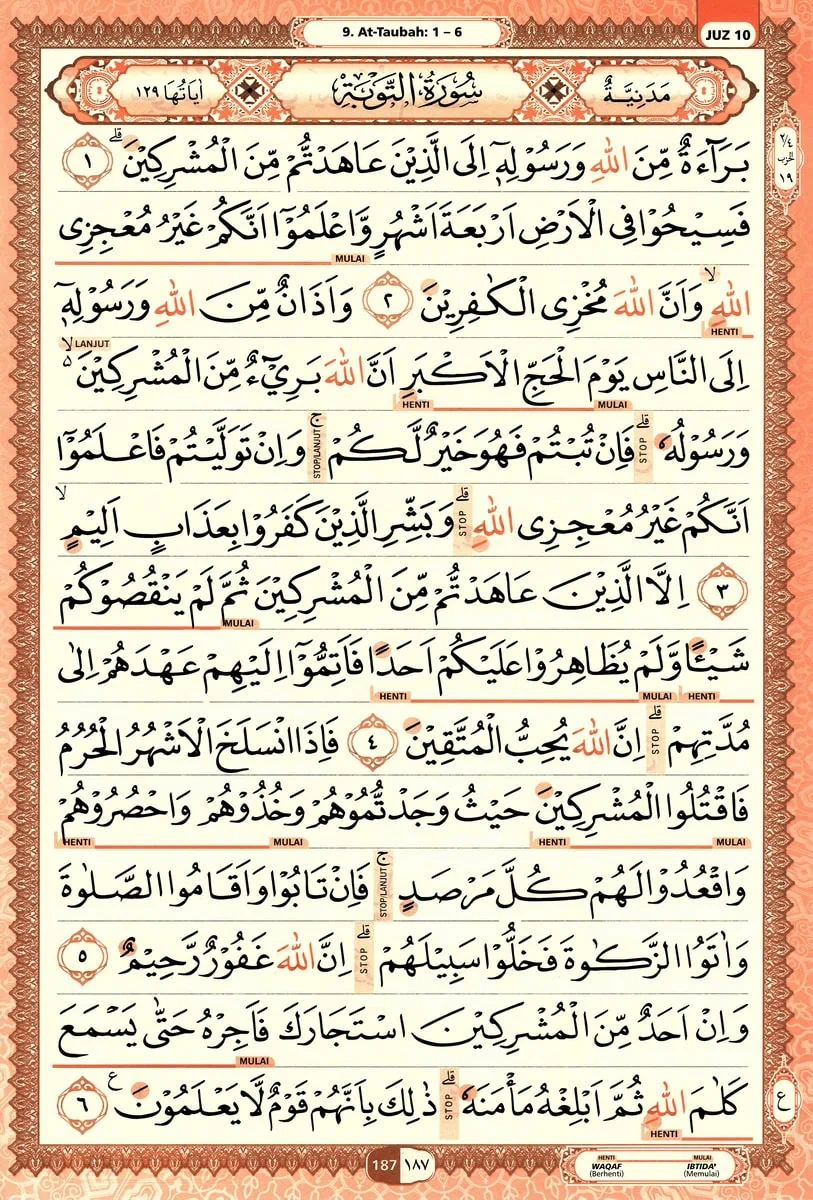 9. At-Taubah: 1 – 6
JUZ 10
مَدَنِيَّةٌ سُوْرَةُ التَّوْبَةِ اٰيَاتُهَا ١٢٩
٢/٤
الحزب
١٩
بَرَاۤءَةٌ مِّنَ اللّٰهِ وَرَسُوْلِهٖٓ اِلَى الَّذِيْنَ عَاهَدْتُّمْ مِّنَ الْمُشْرِكِيْنَۗ ١
فَسِيْحُوْا فِى الْاَرْضِ اَرْبَعَةَ اَشْهُرٍ وَّاعْلَمُوْٓا اَنَّكُمْ غَيْرُ مُعْجِزِى
MULAI
اللّٰهِ ۙوَاَنَّ اللّٰهَ مُخْزِى الْكٰفِرِيْنَ ٢ وَاَذَانٌ مِّنَ اللّٰهِ وَرَسُوْلِهٖٓ
HENTI
LANJUT
اِلَى النَّاسِ يَوْمَ الْحَجِّ الْاَكْبَرِ اَنَّ اللّٰهَ بَرِيْۤءٌ مِّنَ الْمُشْرِكِيْنَ ەۙ
MULAI HENTI
وَرَسُوْلُهٗ ۗ STOP فَاِنْ تُبْتُمْ فَهُوَ خَيْرٌ لَّكُمْ ۚ STOP/LANJUT وَاِنْ تَوَلَّيْتُمْ فَاعْلَمُوْٓا
اَنَّكُمْ غَيْرُ مُعْجِزِى اللّٰهِ ۗ STOP وَبَشِّرِ الَّذِيْنَ كَفَرُوْا بِعَذَابٍ اَلِيْمٍۙ
٣ اِلَّا الَّذِيْنَ عَاهَدْتُّمْ مِّنَ الْمُشْرِكِيْنَ ثُمَّ لَمْ يَنْقُصُوْكُمْ
MULAI
شَيْـًٔا وَّلَمْ يُظَاهِرُوْا عَلَيْكُمْ اَحَدًا فَاَتِمُّوْٓا اِلَيْهِمْ عَهْدَهُمْ اِلٰى
HENTI MULAI HENTI
مُدَّتِهِمْۗ STOP اِنَّ اللّٰهَ يُحِبُّ الْمُتَّقِيْنَ ٤ فَاِذَا انْسَلَخَ الْاَشْهُرُ الْحُرُمُ
فَاقْتُلُوا الْمُشْرِكِيْنَ حَيْثُ وَجَدْتُّمُوْهُمْ وَخُذُوْهُمْ وَاحْصُرُوْهُمْ
MULAI HENTI MULAI HENTI
وَاقْعُدُوْا لَهُمْ كُلَّ مَرْصَدٍۚ STOP/LANJUT فَاِنْ تَابُوْا وَاَقَامُوا الصَّلٰوةَ
وَاٰتَوُا الزَّكٰوةَ فَخَلُّوْا سَبِيْلَهُمْۗ STOP اِنَّ اللّٰهَ غَفُوْرٌ رَّحِيْمٌ ٥
وَاِنْ اَحَدٌ مِّنَ الْمُشْرِكِيْنَ اسْتَجَارَكَ فَاَجِرْهُ حَتّٰى يَسْمَعَ
MULAI
كَلٰمَ اللّٰهِ ثُمَّ اَبْلِغْهُ مَأْمَنَهٗ ۗ STOP ذٰلِكَ بِاَنَّهُمْ قَوْمٌ لَّا يَعْلَمُوْنَ ࣖ ٦
HENTI
ع
187 ١٨٧
HENTI MULAI
WAQAF IBTIDA'
(Berhenti) (Memulai)